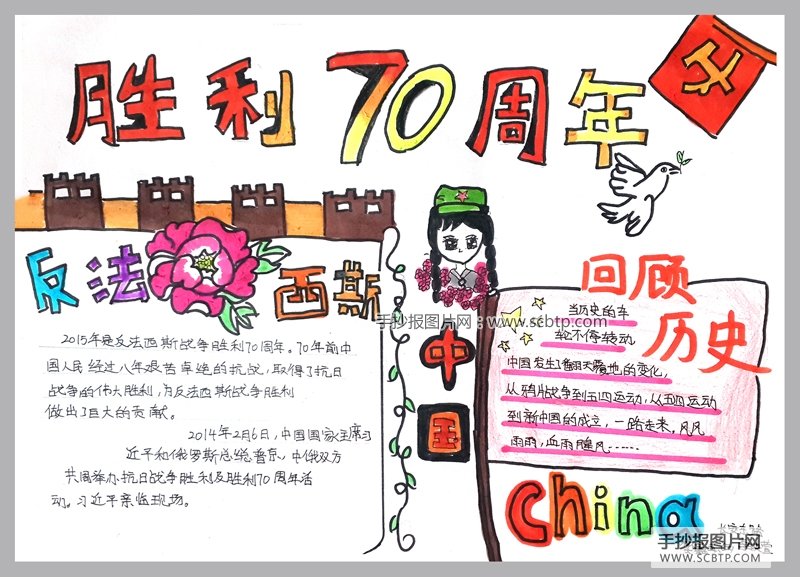 胜利70周年
反法西斯
2015年是反法西斯战争胜利70周年。70年前中
国人民经过八年艰苦卓绝的抗战，取得了抗日
战争的伟大胜利，为反法西斯战争胜利
做出了巨大的贡献。
2014年2月6日，中国国家主席习
近平和俄罗斯总统普京，中俄双方
共同举办抗日战争胜利及胜利70周年活
动。习近平亲临现场。
手抄报图片网：www.scbtp.com
中国
回顾
历史
当历史的车
轮不停转动
中国发生了翻天覆地的变化，
从鸦片战争到五四运动，从五四运动
到新中国的成立，一路走来，风风
雨雨，血雨腥风……
China
手抄报图片网
WWW.SCBTP.COM